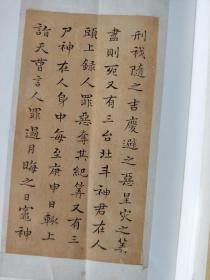 刑禍隨之吉慶避之惡星灾之筭
盡則死又有三台北斗神君在人
頭上錄人罪惡奪其紀筭又有三
尸神在人身中每至庚申日輒上
詣天曹言人罪過月晦之日竈神